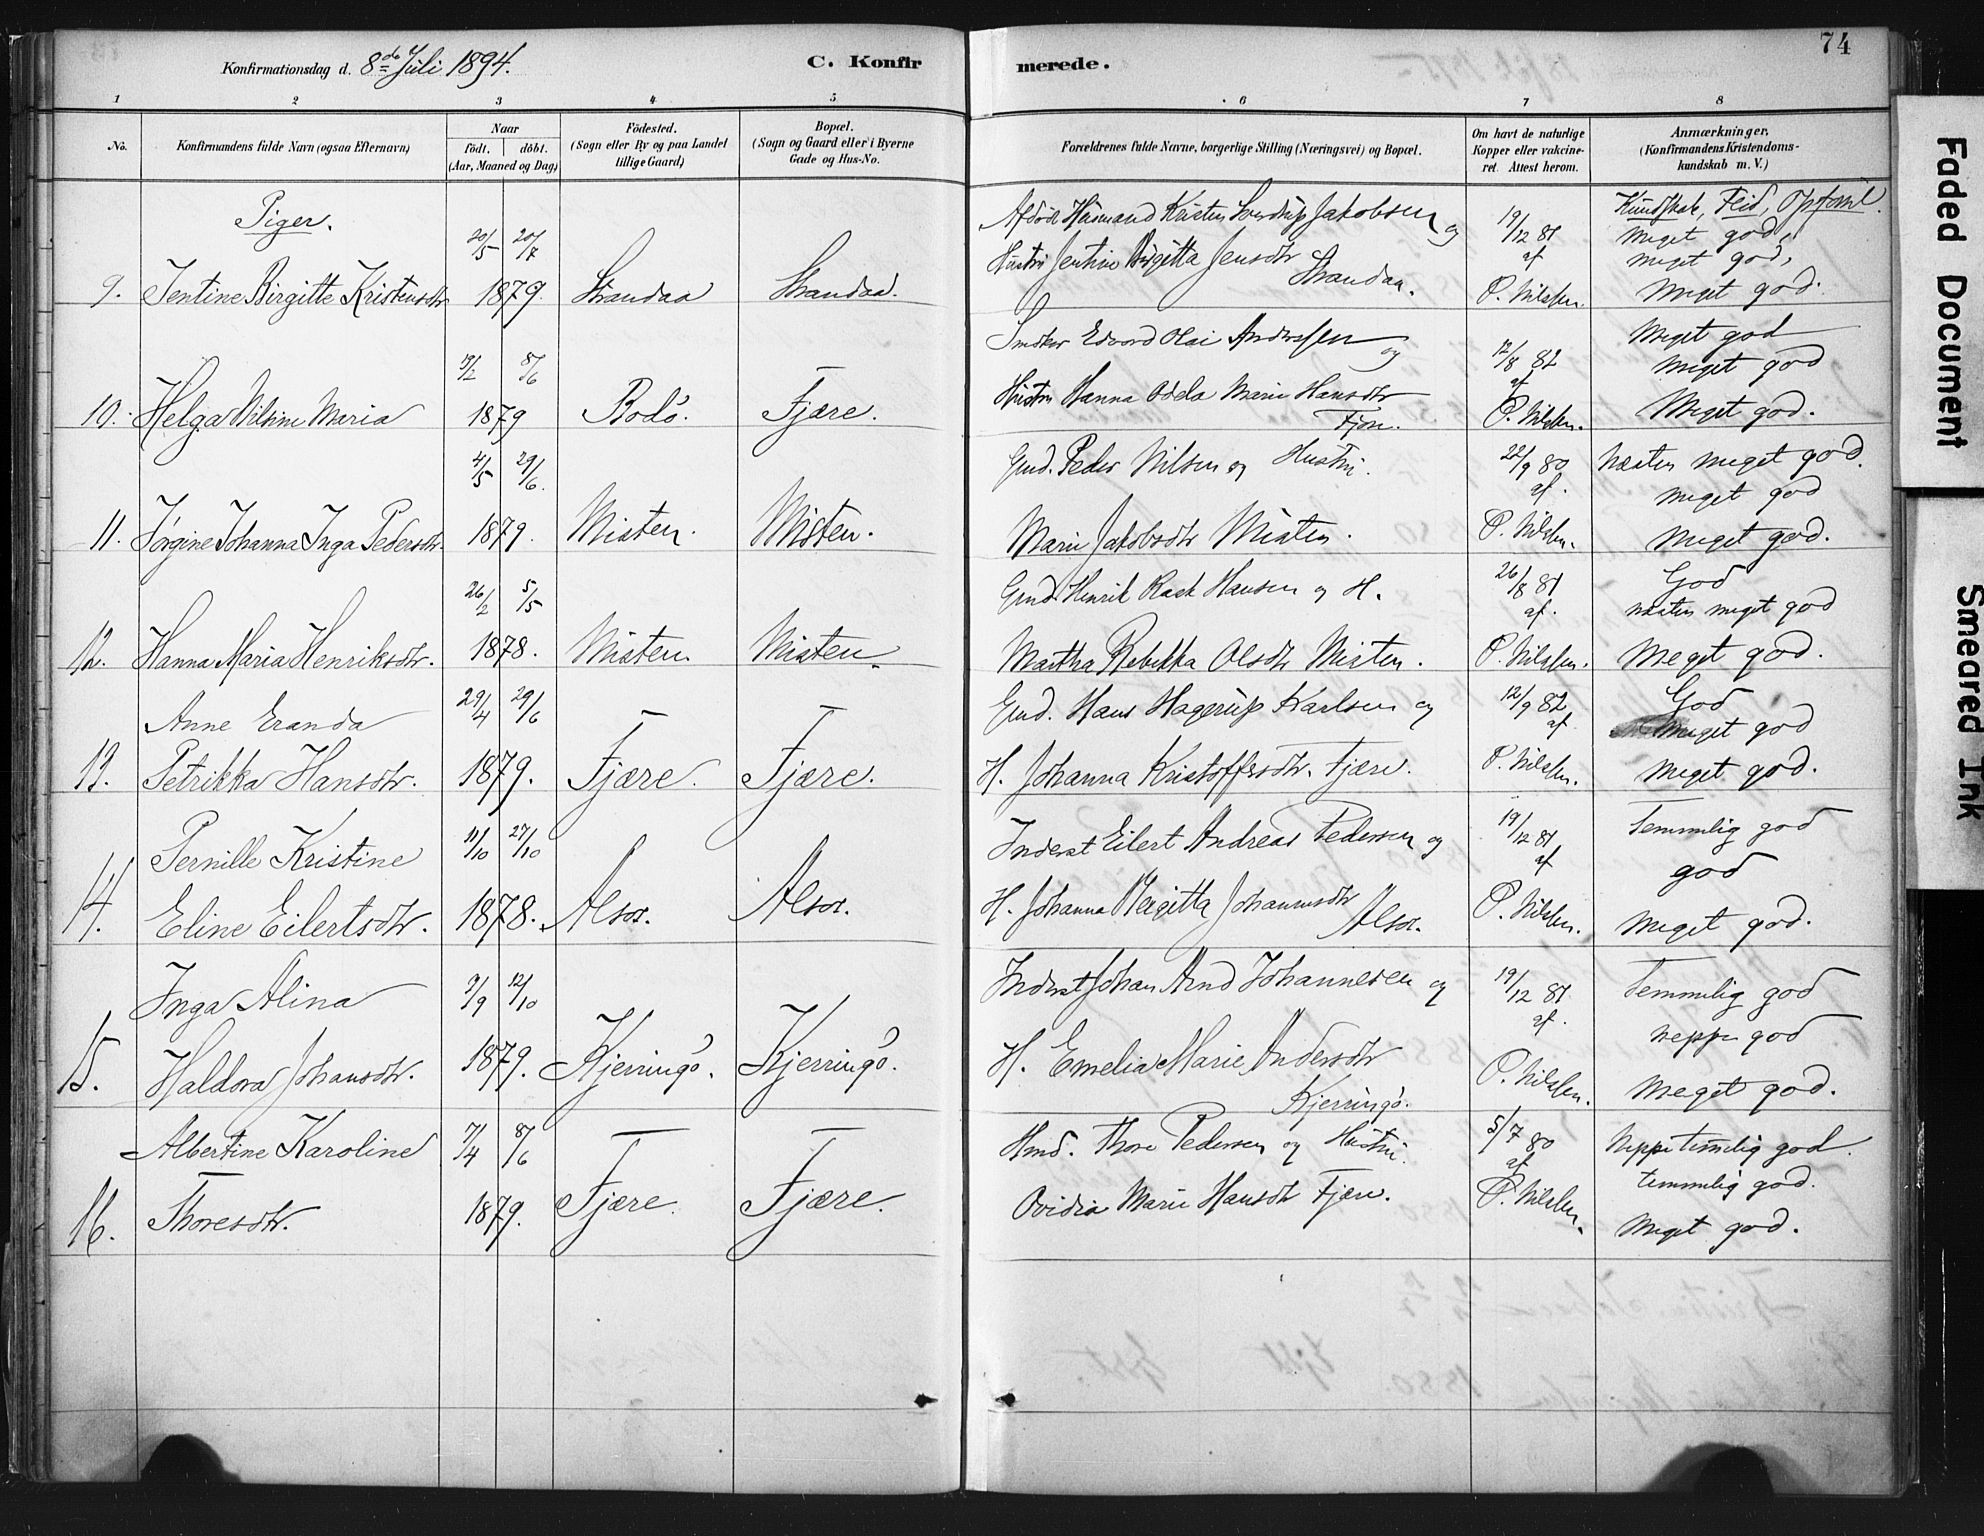 74
Konfirmationsdag d. 8de Juli 1894.
C. Konfirmerede.
1 2 3 4 5 6 7 8
No.
Konfirmandens fulde Navn (ogsaa Efternavn)
Naar
født. døbt.
(Aar, Maaned og Dag)
Födested.
(Sogn eller By og paa Landet
tillige Gaard)
Bopæl.
(Sogn og Gaard eller i Byerne
Gade og Hus-No.
Forældrenes fulde Navne, borgerlige Stilling (Næringsvei) og Bopæl.
Om havt de naturlige
Kopper eller vakcine-
ret. Attest herom.
Anmærkninger.
(Konfirmandens Kristendoms-
kundskab m. V.)
Piger.
Kundskab, Flid, Opførsl.
9. Jentine Birgitte Kristensdtr
20/5 20/7
1879.
Strandaa
Strandaa.
Afdøde Husmand Kristen Jakobsen og
Hustru Jentine Birgitta Jensdtr
Strandaa.
19/12 81
af
P. Nilsen.
Meget god,
meget god,
Meget god.
10. Helga Nilsine Maria
8/6
1879
Bodö.
Fjære.
Smeker Edvard Olai Anderssen og
Hustru Hanna Odela Marie Hansdtr
Fjære.
12/8 82
af
P. Nilsen.
Meget god
meget god
Meget god.
11. Jørgine Johanna Inga Pedersdtr.
4/5 29/6.
1879.
Misten.
Misten.
Gmd. Peder Nilsen og Hustru.
Marie Jakobsdtr Misten.
22/9 80
af.
P. Nilsen.
Næsten meget god.
meget god
Meget god.
12. Hanna Maria Henriksdtr.
26/2 5/5
1878.
Misten
Misten.
Gmd. Henrik Rask Hansen og H.
Martha Rebekka Olsdtr Misten.
26/8 81
af.
P. Nilsen.
God
næsten meget god
Meget god.
Anne Eranda
13. Petrikka Hansdtr.
29/4 29/6
1879.
Fjære.
Fjære.
Gmd. Hans Hagerup Karlsen og
H. Johanna Kristoffersdtr. Fjære.
12/9 82
af
P. Nilsen.
God
meget god
Meget god.
Pernille Kristine
14. Eline Eilertsdtr.
11/10 27/10
1878.
Alsos.
Alsos.
Inderst Eilert Andreas Pedersen og
H. Johanna Birgitta Johannesdtr
Alsos.
19/12 81
af
P. Nilsen.
Temmelig god
god
Meget god.
Inga Alina
15. Haldora Johansdtr.
9/9 12/10
1879.
Kjerringö.
Kjerringö.
Inderst Johan Arnd Johannesen og
H. Emelia Marie Andersdtr
Kjerringö.
19/12 81
af.
P. Nilsen.
Temmelig god
neppe god
Meget god.
Albertine Karoline
16. Thoresdtr.
7/4 8/6
1879.
Fjære.
Fjære.
Hmd. Thore Pedersen og Hustru.
Ovidia Marie Hansdtr Fjære.
5/7 80
af
P. Nilsen.
Neppe temmelig god.
temmelig god.
Meget god.
Faded Document
Smeared Ink